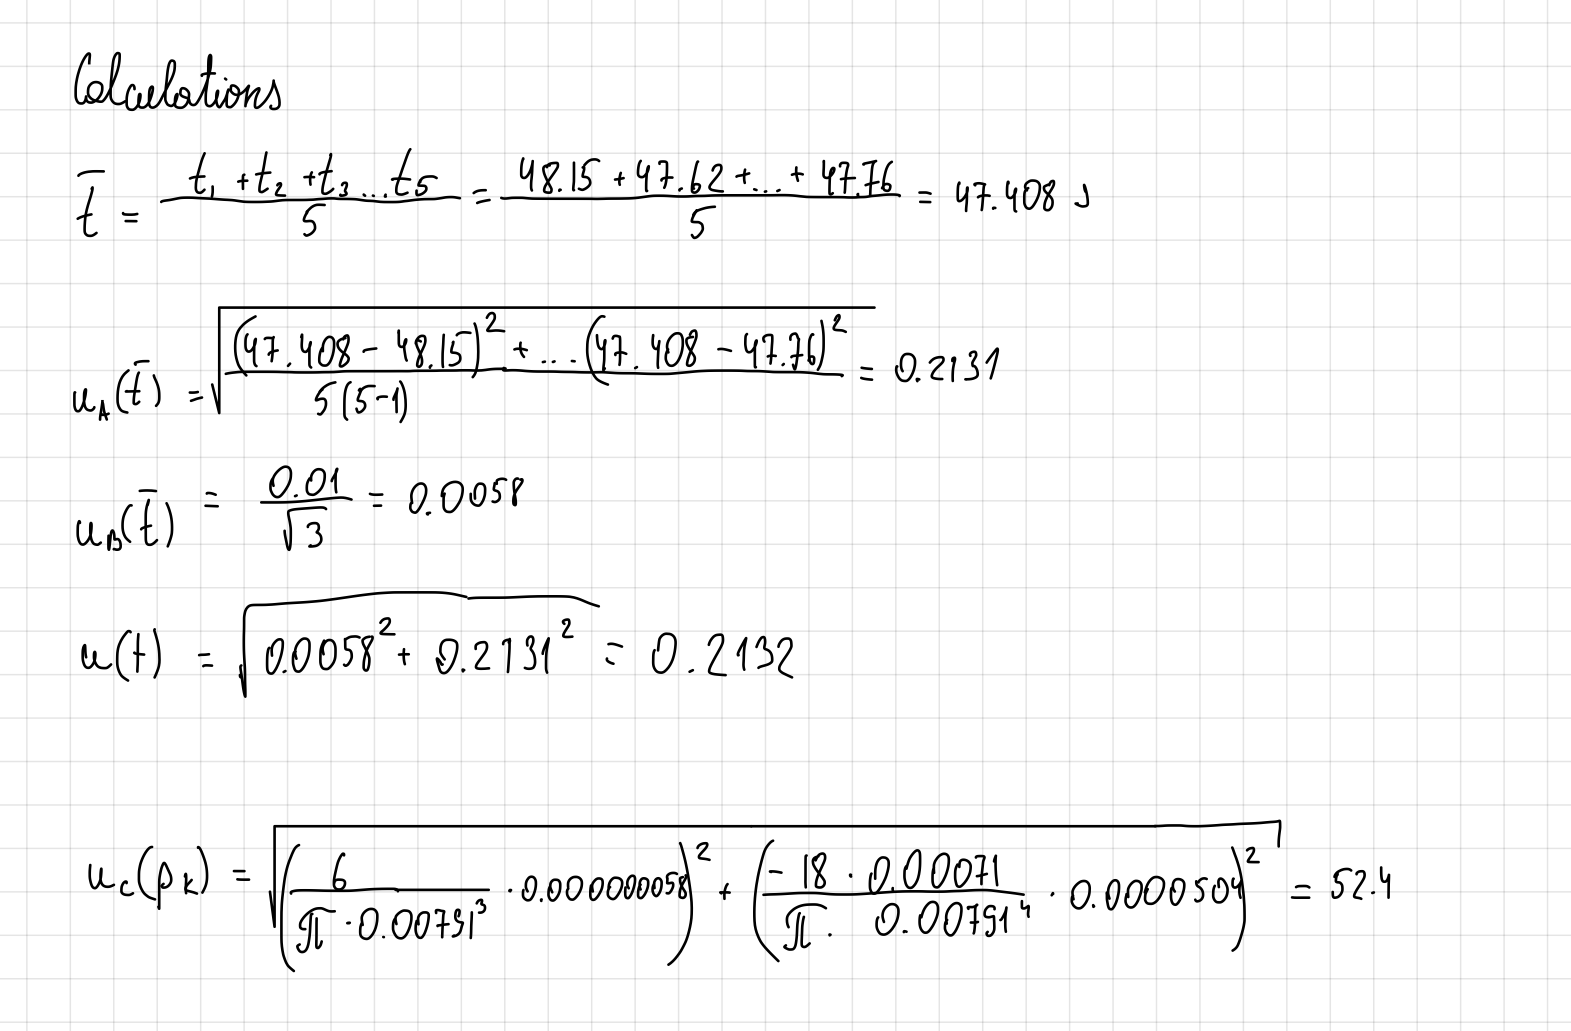 Calculations
t̄ = (t₁ + t₂ + t₃ ... t₅) / 5 = (48.15 + 47.62 + ... + 47.76) / 5 = 47.408 s
u_A(t̄) = √( ((47.408 − 48.15)² + ... (47.408 − 47.76)²) / (5(5−1)) ) = 0.2131
u_B(t̄) = 0.01 / √3 = 0.0058
u(t) = √( 0.0058² + 0.2131² ) = 0.2132
u_c(ρ_k) = √( ( 6 / (π · 0.00791³) · 0.000000058 )² + ( (−18 · 0.00071) / (π · 0.00791⁴) · 0.0000504 )² ) = 52.4